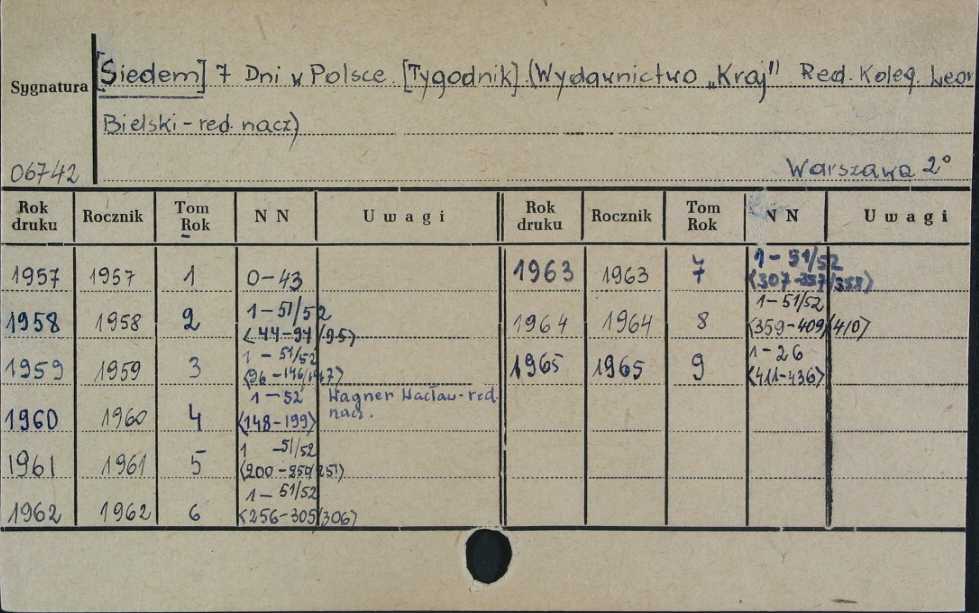 Sygnatura
[Siedem] 7 Dni w Polsce. [Tygodnik]. (Wydawnictwo „Kraj" Red. Koleg. Leon
Bielski - red. nacz)
06742
Warszawa 2°
Rok druku Rocznik Tom Rok N N Uwagi Rok druku Rocznik Tom Rok N N Uwagi
1957 1957 1 0-43
1958 1958 2 1-51/52 <44-94/95>
1959 1959 3 1-51/52 <96-146/147>
1960 1960 4 1-52 <148-199> Wagner Wacław - red. nacz.
1961 1961 5 1 -51/52
1962 1962 6 1-51/52 <256-305/306>
1963 1963 7 1-51/52 <307-357/358>
1964 1964 8 1-51/52 <359-409/410>
1965 1965 9 1-26 <411-436>